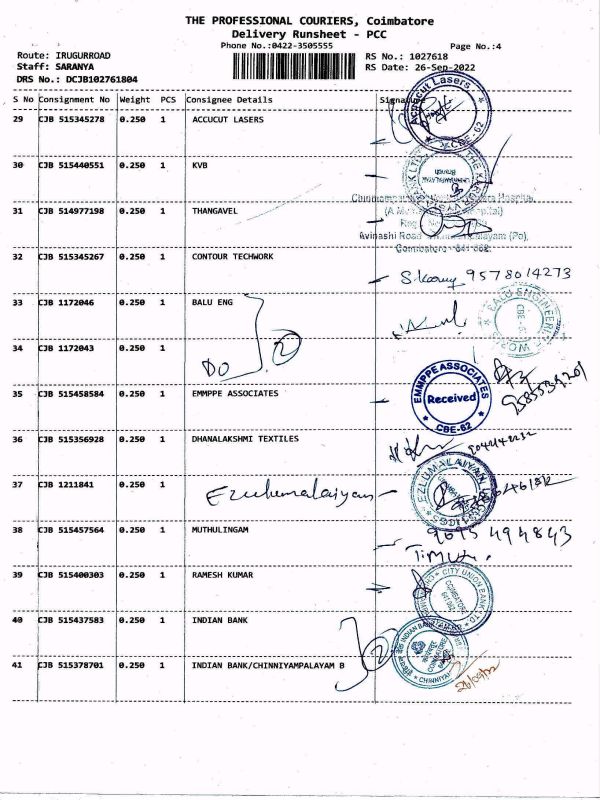 THE PROFESSIONAL COURIERS, Coimbatore
Delivery Runsheet - PCC
Phone No.:0422-3505555
Page No.:4
Route: IRUGURROAD
RS No.: 1027618
Staff: SARANYA
RS Date: 26-Sep-2022
DRS No.: DCJB102761804
S No Consignment No Weight PCS Consignee Details Signature
29 CJB 515345278 0.250 1 ACCUCUT LASERS
Accucut Lasers
CBE-62
30 CJB 515440551 0.250 1 KVB
31 CJB 514977198 0.250 1 THANGAVEL
Avinashi Road
Coimbatore - 641 062.
32 CJB 515345267 0.250 1 CONTOUR TECHWORK
9578014273
33 CJB 1172046 0.250 1 BALU ENG
34 CJB 1172043 0.250 1
DO
2
35 CJB 515458584 0.250 1 EMMPPE ASSOCIATES
EMMPPE ASSOCIATES
Received
CBE-62
36 CJB 515356928 0.250 1 DHANALAKSHMI TEXTILES
37 CJB 1211841 0.250 1
Ezhulumalaiyan
38 CJB 515457564 0.250 1 MUTHULINGAM
9695494843
39 CJB 515400303 0.250 1 RAMESH KUMAR
CITY UNION BANK LTD
COIMBATORE
40 CJB 515437583 0.250 1 INDIAN BANK
INDIAN BANK
2
41 CJB 515378701 0.250 1 INDIAN BANK/CHINNIYAMPALAYAM B
26/09/22